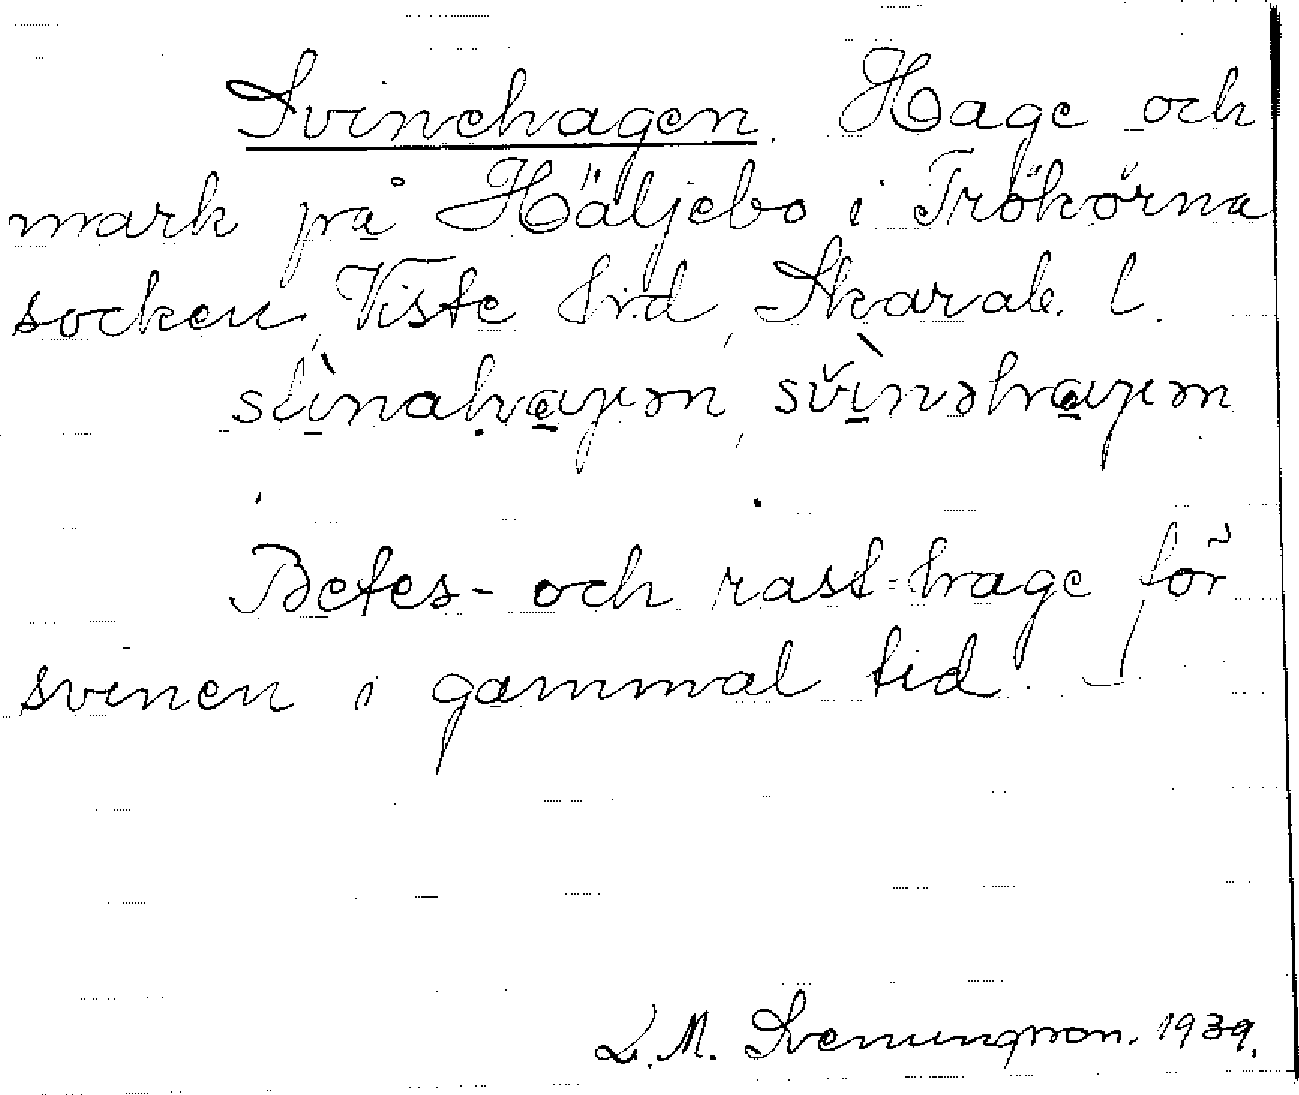 Svinehagen. Hage och
mark på Häljebo i Trökörna
socken, Viste hrd, Skarab. l.
Betes- och rast-hage för
svinen i gammal tid.
L. M. Svenungsson. 1939.